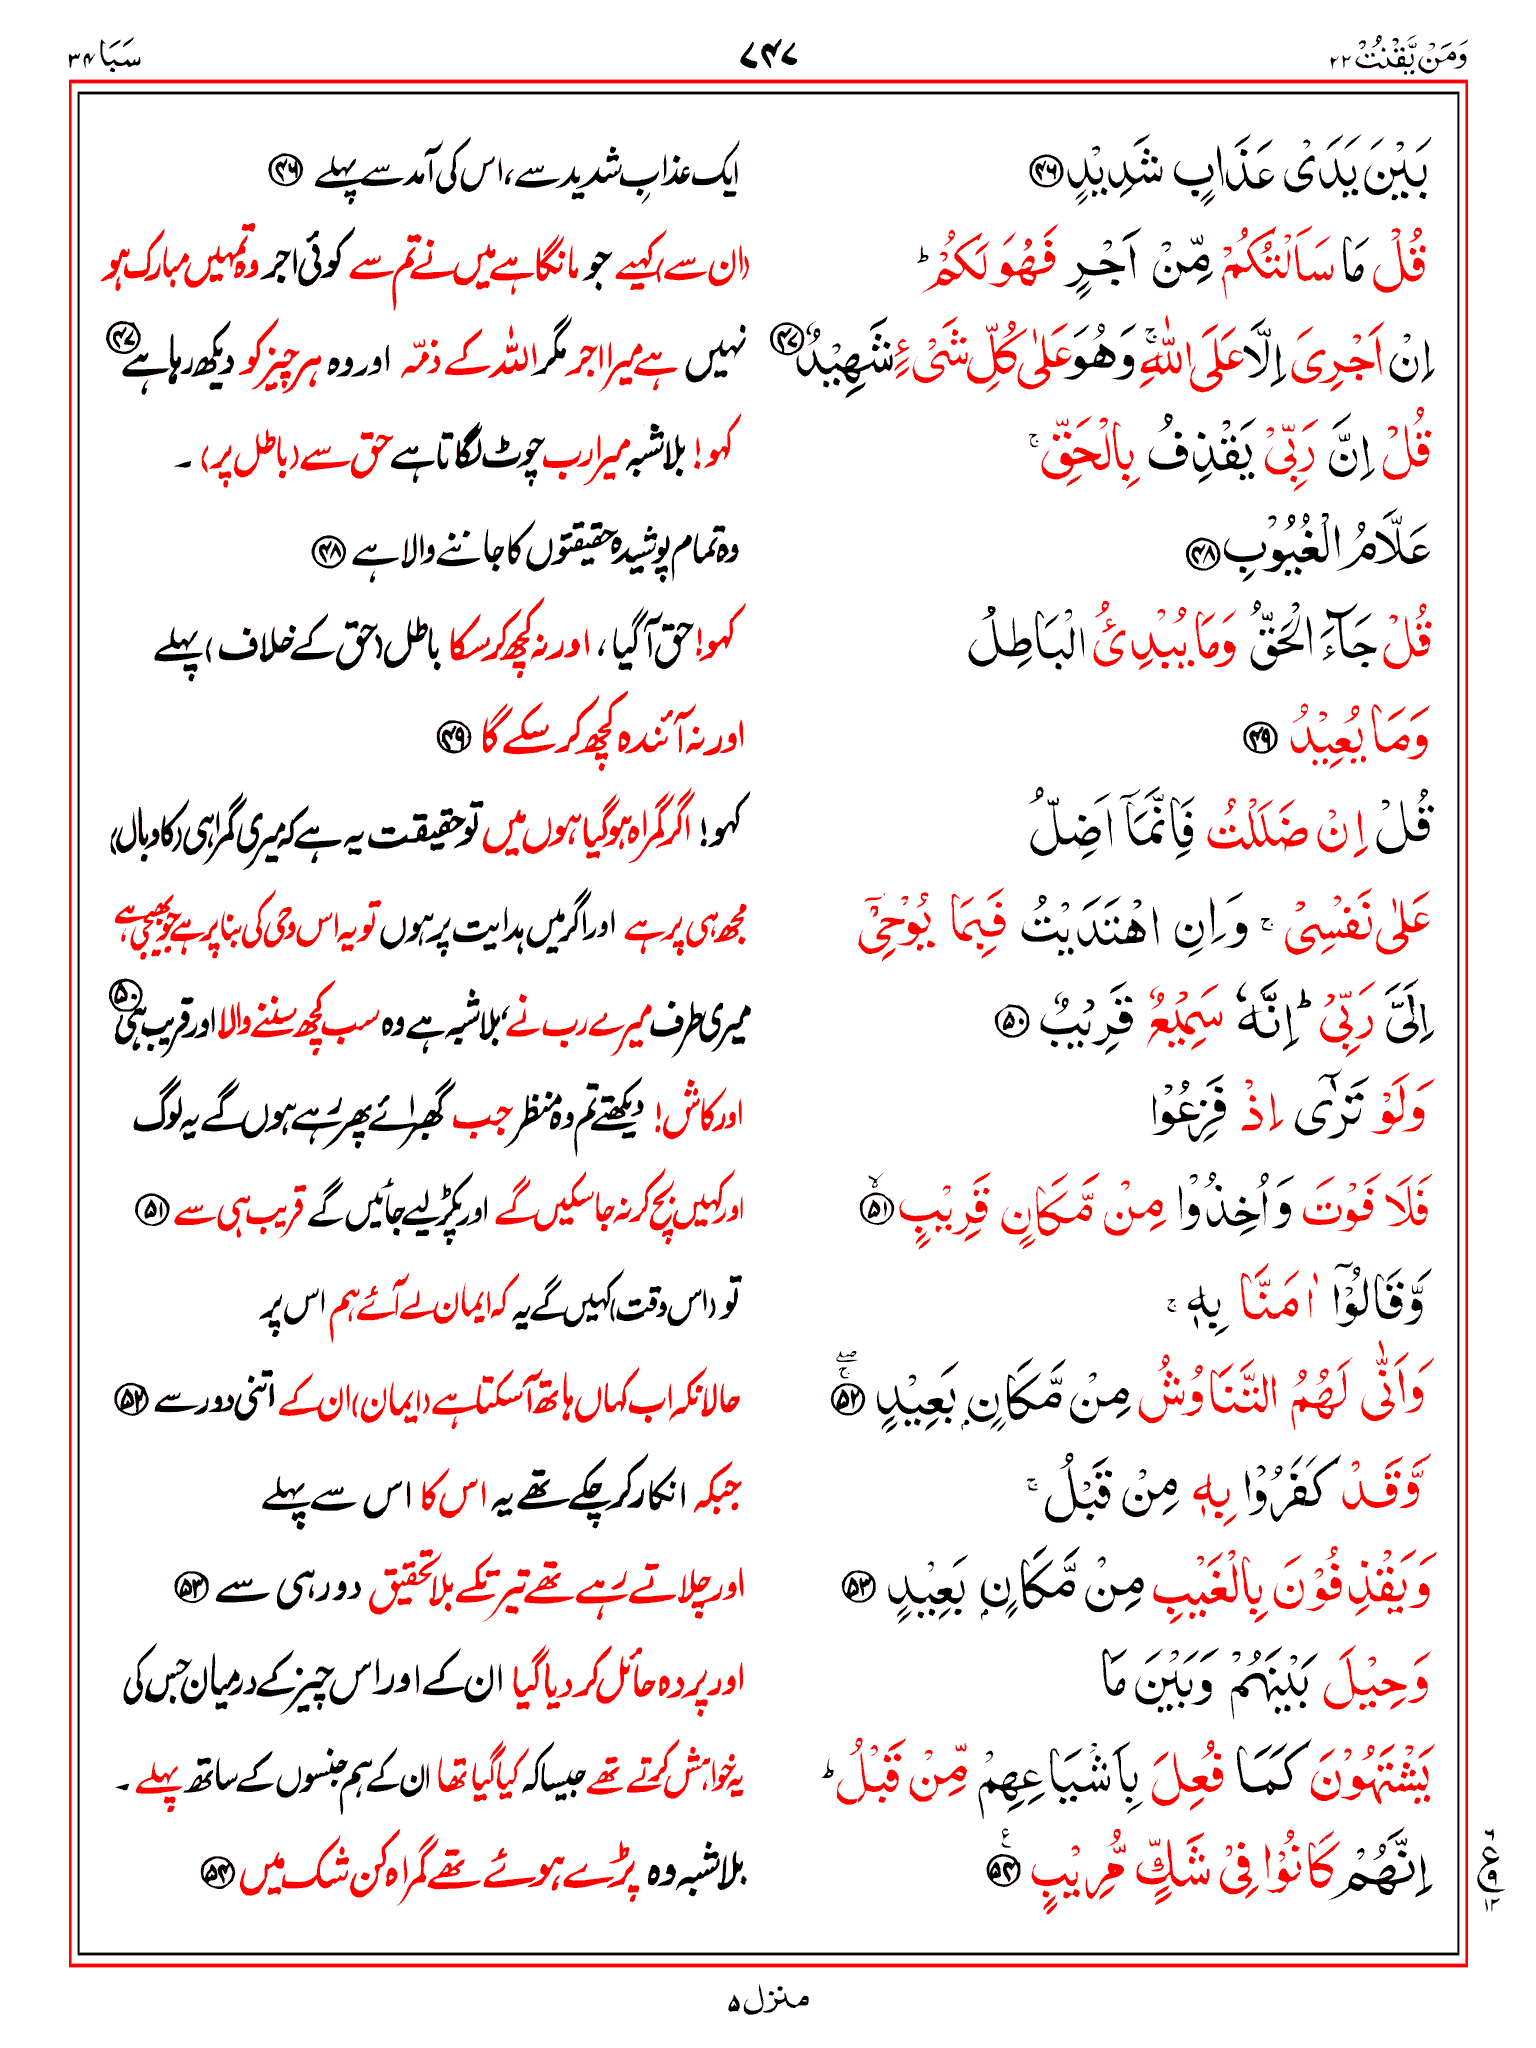 وَمَنْ يَّقْنُتْ ۲۲ ۷۴۷ سَبَا ۳۴
بَيْنَ يَدَىْ عَذَابٍ شَدِيْدٍ ۴۶ ایک عذابِ شدید سے، اس کی آمد سے پہلے ۴۶
قُلْ مَا سَاَلْتُكُمْ مِّنْ اَجْرٍ فَهُوَ لَكُمْ ؕ (ان سے) کہیے جو مانگا ہے میں نے تم سے کوئی اجر وہ تمہیں مبارک ہو
اِنْ اَجْرِىَ اِلَّا عَلَى اللّٰهِ ۚ وَهُوَ عَلٰى كُلِّ شَىْءٍ شَهِيْدٌ ۴۷ نہیں ہے میرا اجر مگر اللہ کے ذمّہ اور وہ ہر چیز کو دیکھ رہا ہے ۴۷
قُلْ اِنَّ رَبِّىْ يَقْذِفُ بِالْحَقِّ ۚ کہو! بلاشبہ میرا رب چوٹ لگاتا ہے حق سے (باطل پر) ۔
عَلَّامُ الْغُيُوْبِ ۴۸ وہ تمام پوشیدہ حقیقتوں کا جاننے والا ہے ۴۸
قُلْ جَآءَ الْحَقُّ وَمَا يُبْدِئُ الْبَاطِلُ کہو! حق آ گیا، اور نہ کچھ کر سکا باطل (حق کے خلاف) پہلے
وَمَا يُعِيْدُ ۴۹ اور نہ آئندہ کچھ کر سکے گا ۴۹
قُلْ اِنْ ضَلَلْتُ فَاِنَّمَآ اَضِلُّ کہو! اگر گمراہ ہو گیا ہوں میں تو حقیقت یہ ہے کہ میری گمراہی (کا وبال)
عَلٰى نَفْسِىْ ۚ وَاِنِ اهْتَدَيْتُ فَبِمَا يُوْحِىْٓ مجھ ہی پر ہے اور اگر میں ہدایت پر ہوں تو یہ اس وحی کی بنا پر ہے جو بھیجی ہے
اِلَىَّ رَبِّىْ ؕ اِنَّهٗ سَمِيْعٌ قَرِيْبٌ ۵۰ میری طرف میرے رب نے، بلاشبہ ہے وہ سب کچھ سننے والا اور قریب ہی ۵۰
وَلَوْ تَرٰٓى اِذْ فَزِعُوْا اور کاش! دیکھتے تم وہ منظر جب گھبرائے پھر رہے ہوں گے یہ لوگ
فَلَا فَوْتَ وَاُخِذُوْا مِنْ مَّكَانٍ قَرِيْبٍ ۵۱ اور کہیں بچ کر نہ جا سکیں گے اور پکڑ لیے جائیں گے قریب ہی سے ۵۱
وَّقَالُوْٓا اٰمَنَّا بِهٖ ۚ تو (اس وقت) کہیں گے یہ کہ ایمان لے آئے ہم اس پر
وَاَنّٰى لَهُمُ التَّنَاوُشُ مِنْ مَّكَانٍۭ بَعِيْدٍ ۵۲ حالانکہ اب کہاں ہاتھ آ سکتا ہے (ایمان) ان کے اتنی دور سے ۵۲
وَّقَدْ كَفَرُوْا بِهٖ مِنْ قَبْلُ ۚ جبکہ انکار کر چکے تھے یہ اس کا اس سے پہلے
وَيَقْذِفُوْنَ بِالْغَيْبِ مِنْ مَّكَانٍۭ بَعِيْدٍ ۵۳ اور چلاتے رہے تھے تیر تکے بلا تحقیق دور ہی سے ۵۳
وَحِيْلَ بَيْنَهُمْ وَبَيْنَ مَا اور پردہ حائل کر دیا گیا ان کے اور اس چیز کے درمیان جس کی
يَشْتَهُوْنَ كَمَا فُعِلَ بِاَشْيَاعِهِمْ مِّنْ قَبْلُ ؕ یہ خواہش کرتے تھے جیسا کہ کیا گیا تھا ان کے ہم جنسوں کے ساتھ پہلے ۔
اِنَّهُمْ كَانُوْا فِىْ شَكٍّ مُّرِيْبٍ ۵۴ بلاشبہ وہ پڑے ہوئے تھے گمراہ کن شک میں ۵۴
۶ ع ۹ ۱۲
منزل ۵